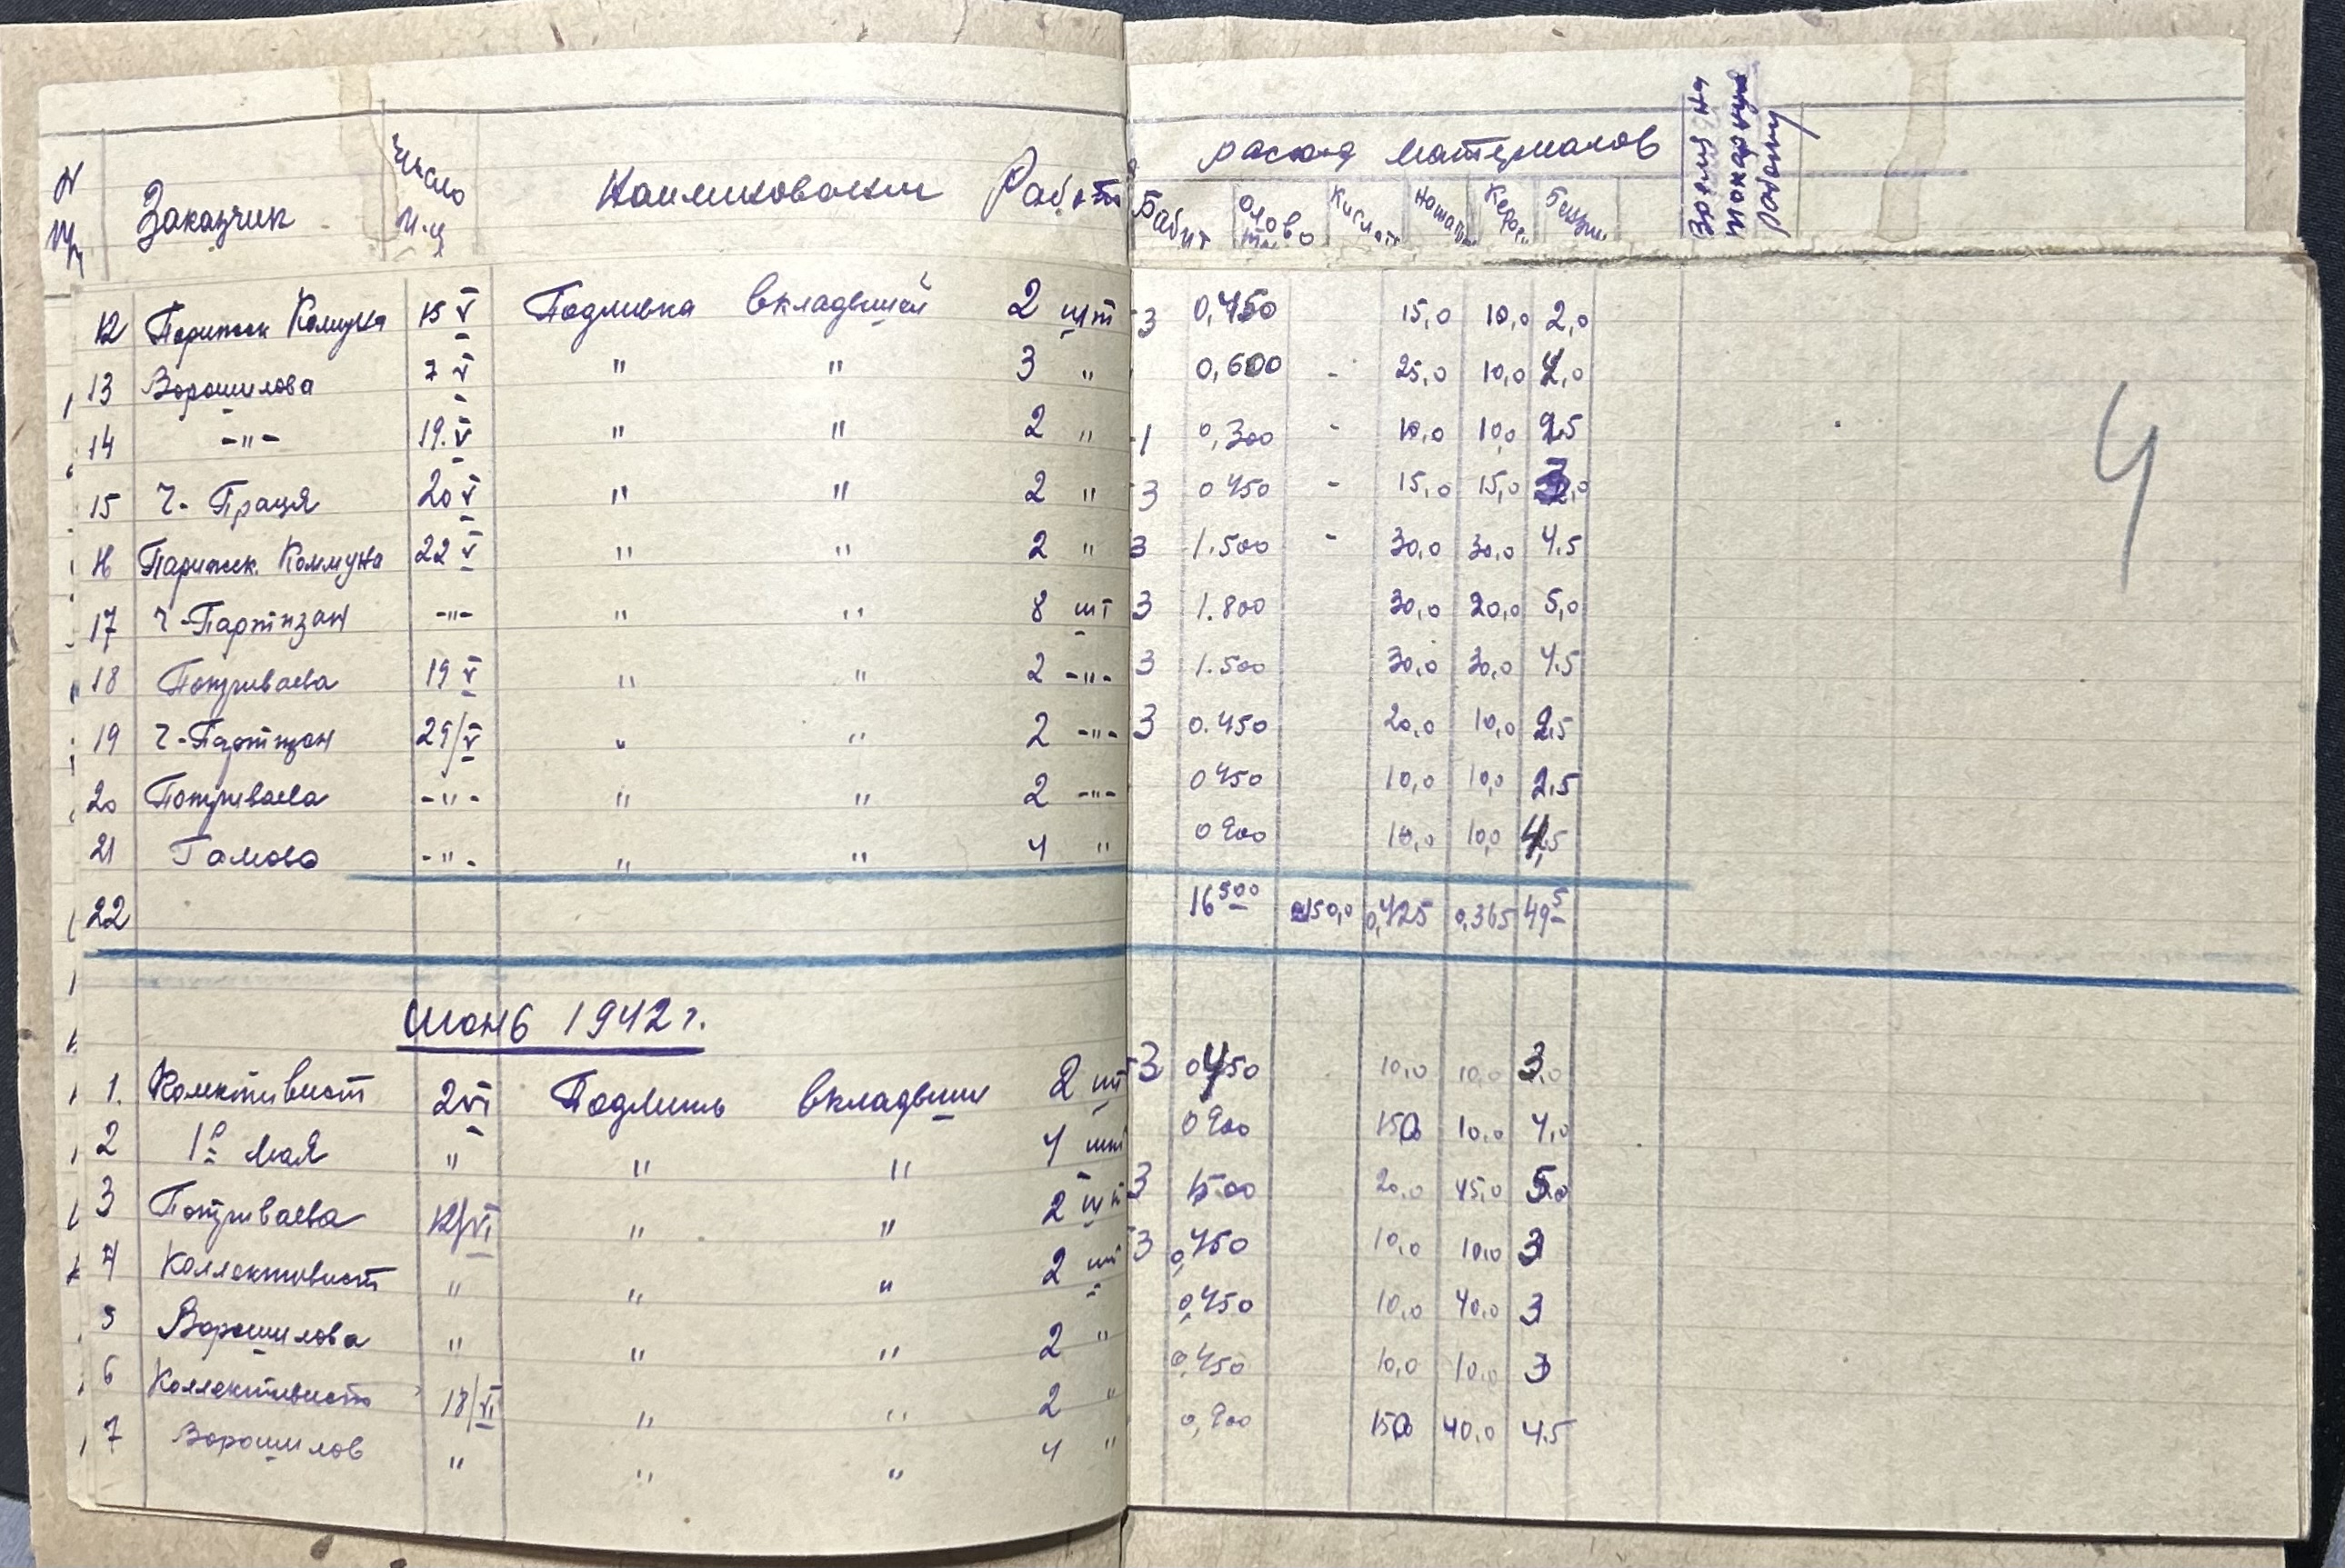 N п/п Заказчик Число м-ц Наименовании Работ расход материалов
Бабит Олово Кислот Нашат Керос Бензин Время на токарную работу
12 Парижск Комуна 15 V Подливка вкладышей 2 шт 3 0,450 15,0 10,0 2,0
13 Ворошилова 7 V " " 3 " 0,600 - 25,0 10,0 4,0
14 -"- 19.V " " 2 " 1 0,300 - 10,0 10,0 2,5
15 Ч- Праця 20 V " " 2 " 3 0 450 - 15,0 15,0 3,0
16 Парижск. Коммуна 22 V " " 2 " 3 1.500 - 30,0 30,0 4.5
17 Ч-Партизан -"- " " 8 шт 3 1.800 30,0 20,0 5,0
18 Потриваева 19 V " " 2 -"- 3 1.500 30,0 30,0 4.5
19 Ч-Партизан 29/V " " 2 -"- 3 0.450 20,0 10,0 2.5
20 Потриваева -"- " " 2 -"- 0450 10,0 10,0 2.5
21 Гамова -"- " " 4 " 0900 10,0 10,0 4,5
22 16500 0,425 0,365 495
4
Июнь 1942 г.
1. Колективист 2 VI Подлить вкладыши 2 шт 3 0450 10,0 10,0 3,0
2 1е Мая " " " 4 шт 0900 150 10,0 4,0
3 Потриваева 12/VI " " 2 шт 3 1500 20,0 45,0 5,0
4 Коллективист " " " 2 шт 3 0,450 10,0 10,0 3
5 Ворошилова " " " 2 " 0,450 10,0 40,0 3
6 Коллективист 18/VI " " 2 " 0,450 10,0 10,0 3
7 Ворошилов " " " 4 " 0,900 150 40,0 4.5